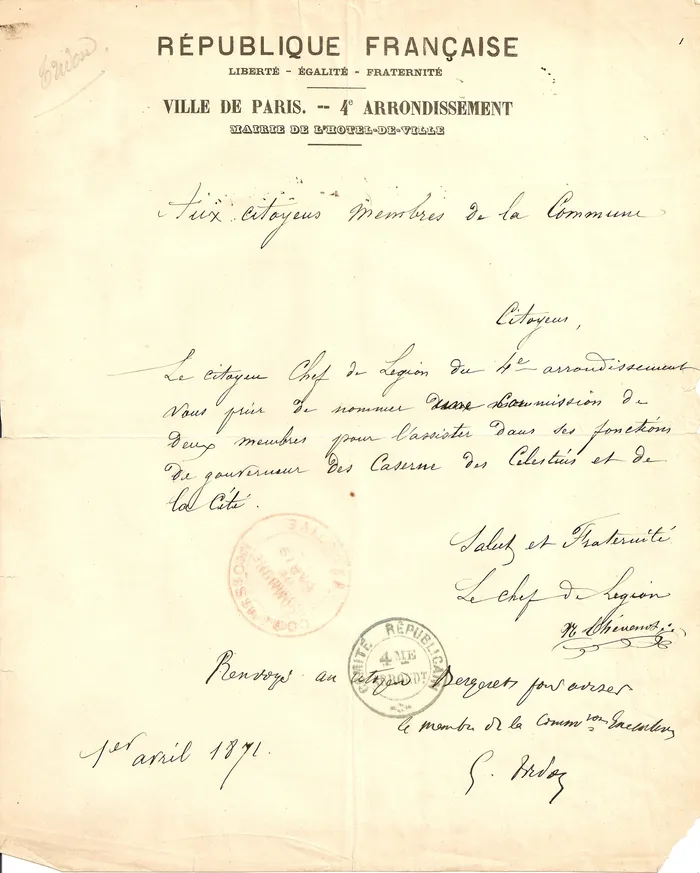 Tridon
RÉPUBLIQUE FRANÇAISE
LIBERTÉ - ÉGALITÉ - FRATERNITÉ
VILLE DE PARIS. -- 4e ARRONDISSEMENT
MAIRIE DE L'HOTEL-DE-VILLE
Aux citoyens membres de la Commune
Citoyens,
Le citoyen Chef de Légion du 4e arrondissement
vous prier de nommer une commission de
deux membres pour l'assister dans ses fonctions
de gouverneur des Caserne des Célestins et de
la Cité.
Salut et Fraternité
Le chef de Légion
COMITÉ RÉPUBLICAIN
4ME
ARRONDT
Renvoyé au citoyen Bergeret pour aviser
le membre de la Commion Executive
1er avril 1871.
G. Tridon